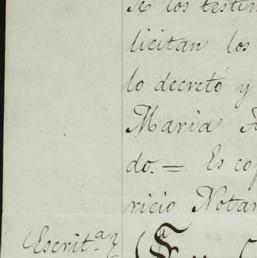 A los testim
licitan los
lo decretó y
Maria A
do. = Es cop
ricio Notar
Escrit.ª